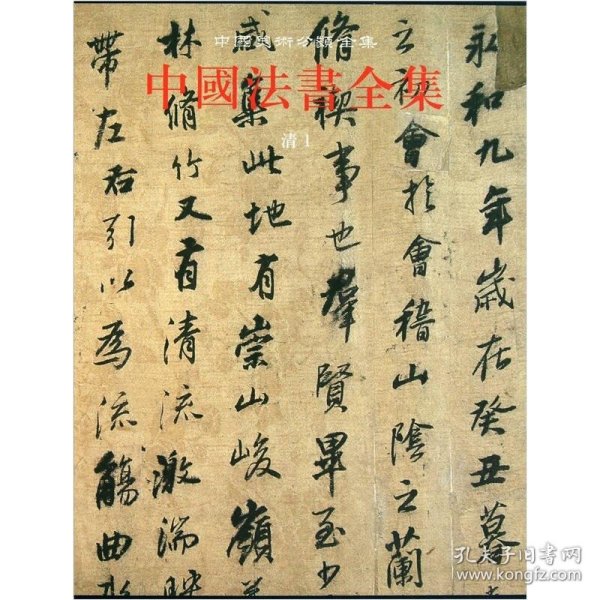 中國美術分類全集
中國法書全集
清1
永和九年歲在癸丑暮
之初會於會稽山陰之蘭
脩禊事也羣賢畢至少
咸集此地有崇山峻嶺
林脩竹又有清流激湍映
帶左右引以為流觴曲水
孔夫子旧书网
www.kongfz.com